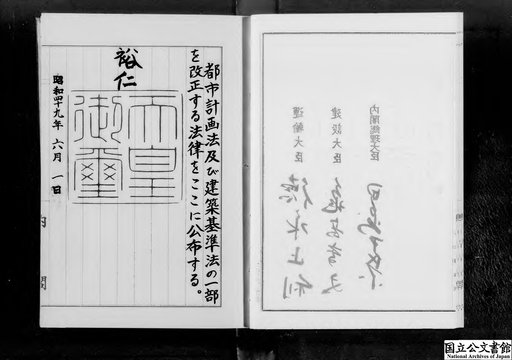 都市計画法及び建築基準法の一部
を改正する法律をここに公布する。
裕仁
天皇
御璽
昭和四十九年 六月 一日
内閣
内閣総理大臣
建設大臣
運輸大臣
国立公文書館
National Archives of Japan